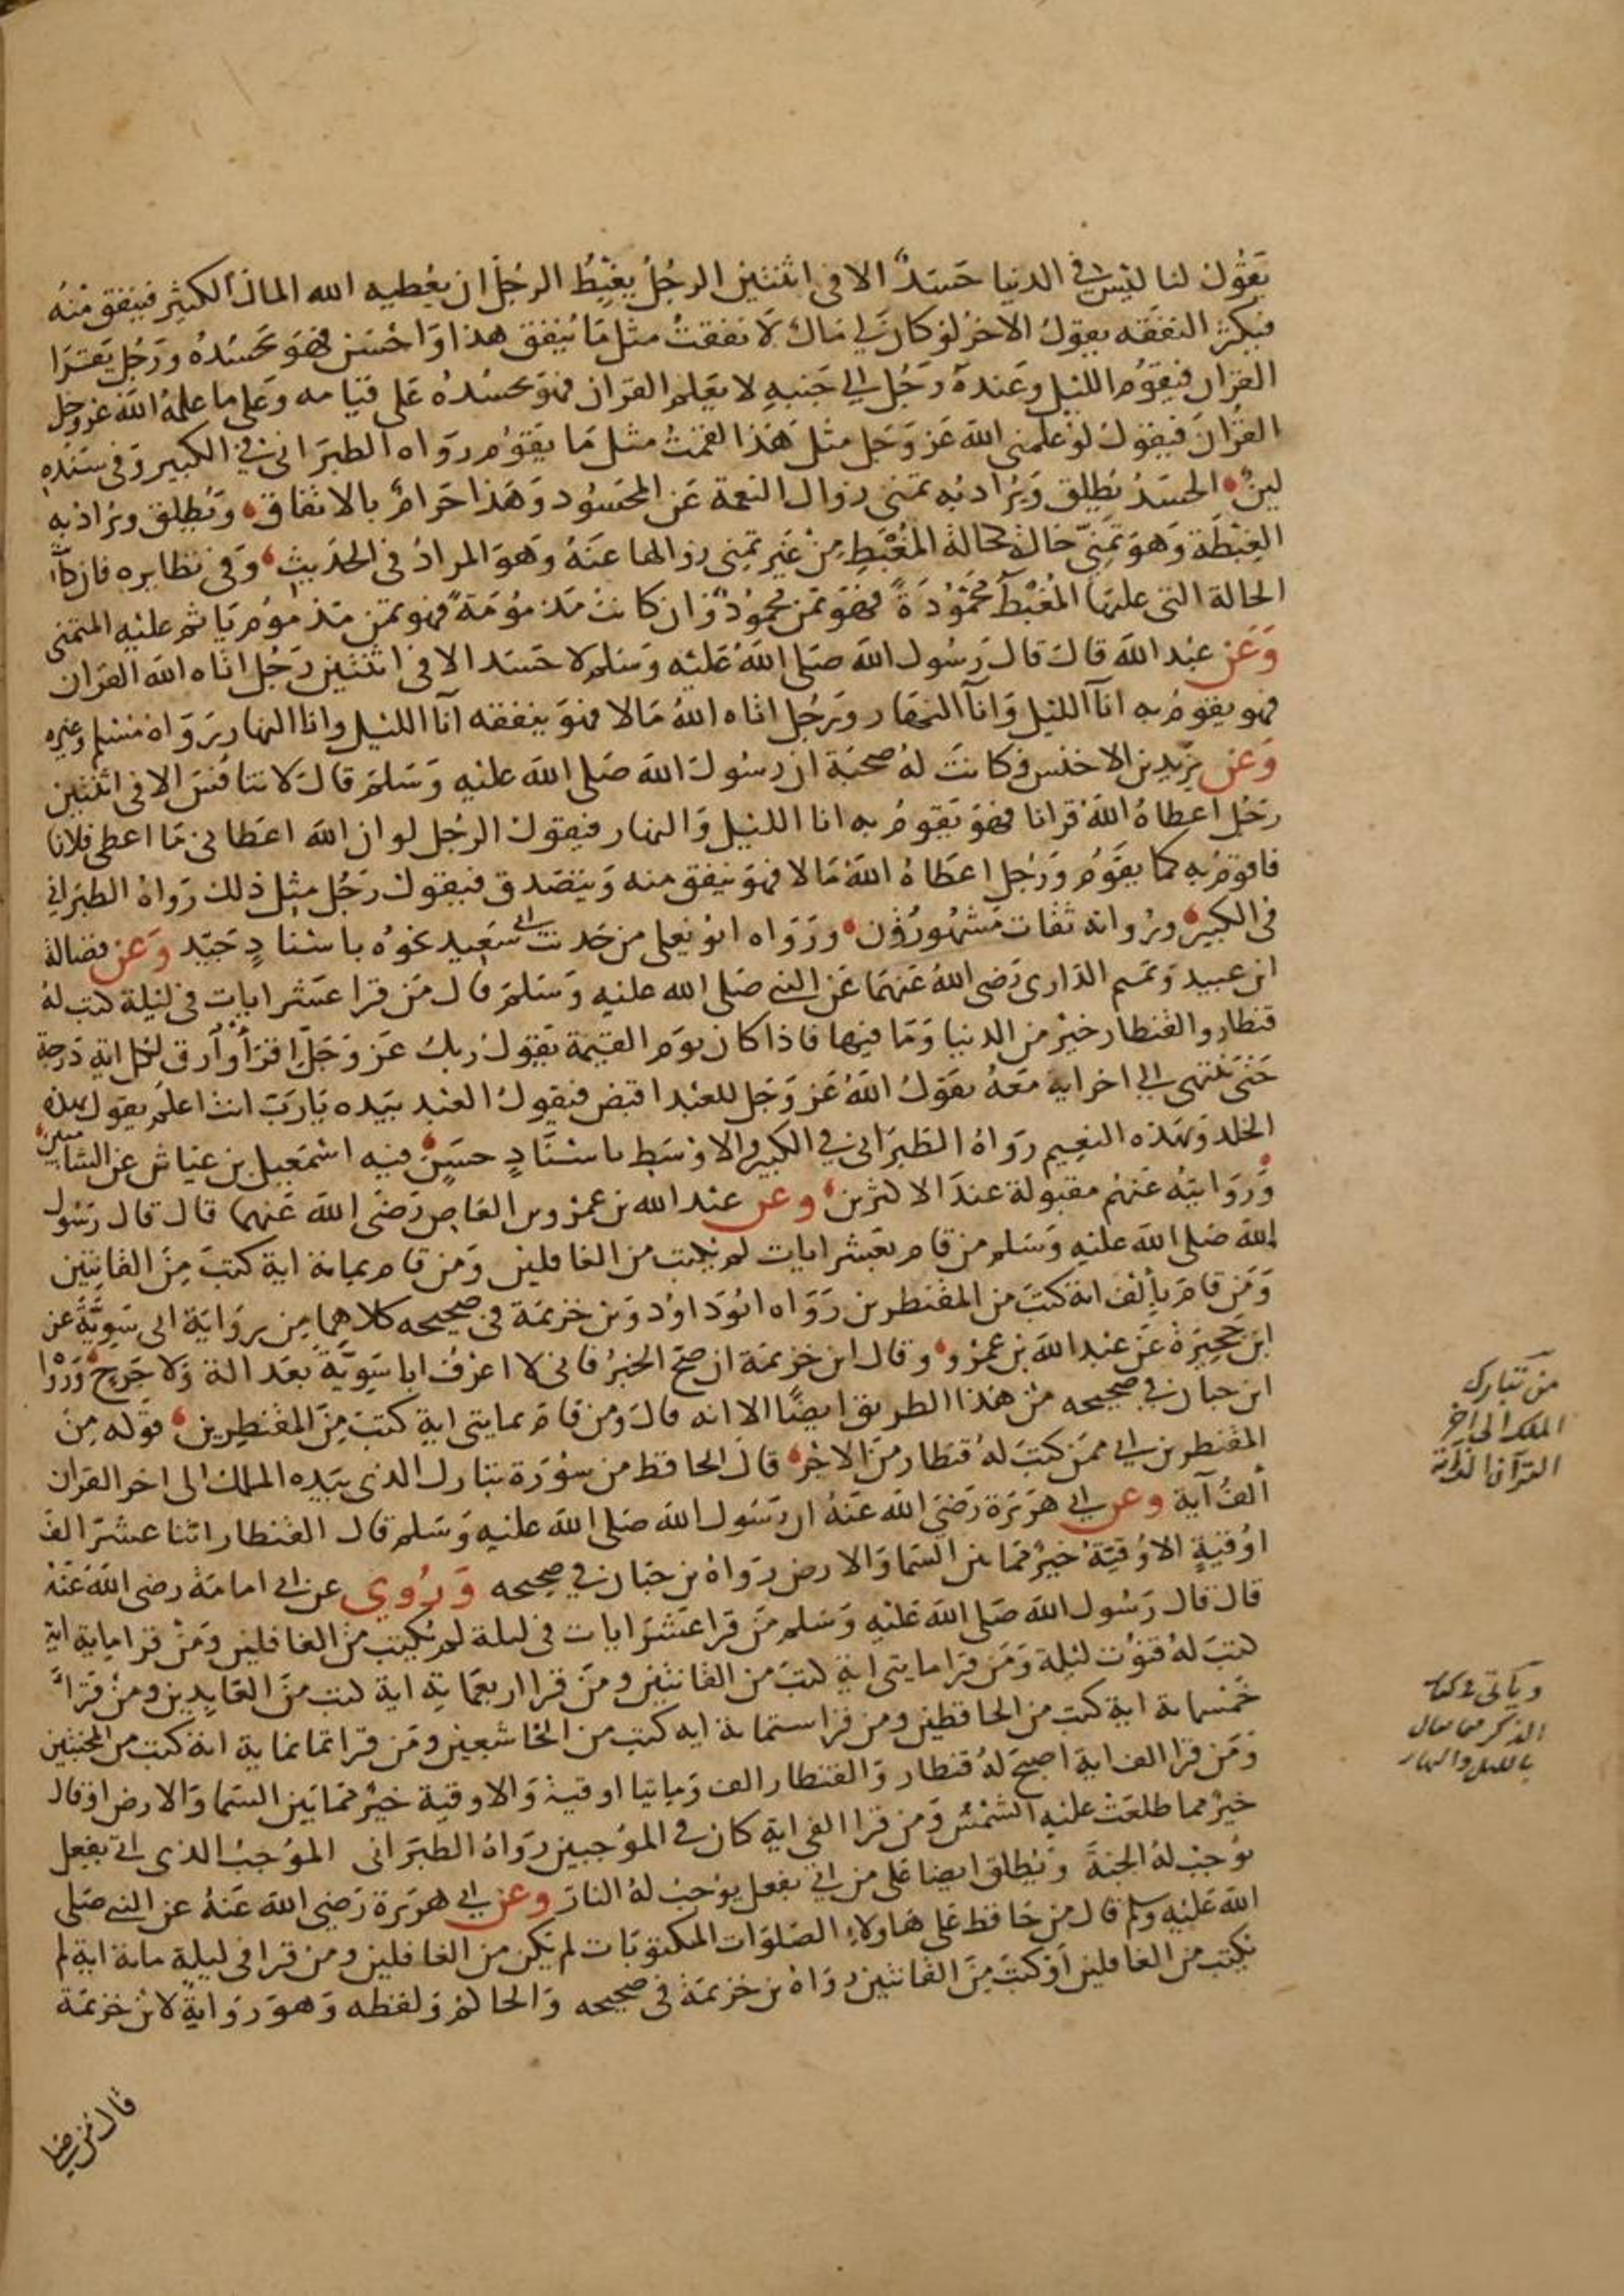 يقول لنا ليس في الدنيا حسد الا في اثنتين الرجل يغبط الرجل ان يعطيه الله المال الكثير فينفق منه
فيكثر النفقه يقول الاخر لو كان لي مال لانفقت مثل ما ينفق هذا واحسن فهو يحسده ورجل يقرا
القران فيقوم الليل وعنده رجل الي جنبه لا يعلم القران فهو يحسده على قيامه وعلى ما علمه الله عز وجل
القران فيقول لو علمني الله عز وجل مثل هذا لقمت مثل ما يقوم رواه الطبراني في الكبير وفي سنده
لين الحسد يطلق ويراد به تمني زوال النعمة عن المحسود وهذا حرام بالاتفاق ويطلق ويراد به
الغبطة وهو تمني حالة كحالة المغبط من غير تمني زوالها عنه وهو المراد في الحديث وفي نظايره فان كا
الحالة التي عليها المغبط محمودة فهو تمن محمود وان كانت مذمومة فهو تمن مذموم ياثم عليه المتمني
وعن عبد الله قال قال رسول الله صلى الله عليه وسلم لا حسد الا في اثنتين رجل اتاه الله القران
فهو يقوم به آنآ الليل وآنآ النهار ورجل اتاه الله مالا فهو ينفقه آنآ الليل وانا النهار رواه مسلم وغيره
وعن يزيد بن الاخنس وكانت له صحبة ان رسول الله صلى الله عليه وسلم قال لا تنافس الا في اثنتين
رجل اعطاه الله قرانا فهو يقوم به انا الليل والنهار فيقول الرجل لو ان الله اعطاني ما اعطى فلانا
فاقوم به كما يقوم ورجل اعطاه الله مالا فهو ينفق منه ويتصدق فيقول رجل مثل ذلك رواه الطبراني
في الكبير ورواته ثقات مشهورون ورواه ابو يعلى من حديث ابي سعيد نحوه باسناد جيد وعن فضالة
ابن عبيد وتميم الداري رضي الله عنهما عن النبي صلى الله عليه وسلم قال من قرا عشر ايات في ليلة كتب له
قنطار والقنطار خير من الدنيا وما فيها فاذا كان يوم القيمة يقول ربك عز وجل اقرأ وآرق لكل اية درجة
حتى ينتهي الي اخر اية معه يقول الله عز وجل للعبد اقبض فيقول العبد بيده يا رب انت اعلم يقول بهذه
الخلد وبهذه النعيم رواه الطبراني في الكبير والاوسط باسناد حسن فيه اسمعيل بن عياش عن الشاميين
وروايته عنهم مقبولة عند الاكثرين وعن عبد الله بن عمرو بن العاص رضي الله عنهما قال قال رسول
الله صلى الله عليه وسلم من قام بعشر ايات لم يكتب من الغافلين ومن قام بماية اية كتب من القانتين
ومن قام بألف اية كتب من المقنطرين رواه ابو داود وبن خزيمة في صحيحه كلاهما من رواية ابي سوية عن
ابن حجيرة عن عبد الله بن عمرو وقال ابن خزيمة ان صح الخبر فاني لا اعرف ابا سوية بعدالة ولا جرح ورواه
ابن حبان في صحيحه من هذا الطريق ايضا الا انه قال ومن قام بمايتي اية كتب من المقنطرين قوله من
المقنطرين اي ممن كتب له قنطار من الاجر قال الحافظ من سورة تبارك الذي بيده الملك الى اخر القران
ألف آية وعن ابي هريرة رضي الله عنه ان رسول الله صلى الله عليه وسلم قال القنطار اثنا عشر الف
اوقية الاوقية خير مما بين السما والارض رواه بن حبان في صحيحه وروي عن ابي امامة رضي الله عنه
قال قال رسول الله صلى الله عليه وسلم من قرا عشر ايات في ليلة لم يكتب من الغافلين ومن قرا ماية اية
كتب له قنوت ليلة ومن قرا مايتي اية كتب من القانتين ومن قرا اربعماية اية كتب من العابدين ومن قرأ
خمسماية اية كتب من الحافظين ومن قرا ستماية ايه كتب من الخاشعين ومن قرا ثمانماية اية كتب من المخبتين
ومن قرا الف اية اصبح له قنطار والقنطار الف ومايتا اوقية والاوقية خير مما بين السما والارض او قال
خير مما طلعت عليه الشمس ومن قرا الفي اية كان في الموجبين رواه الطبراني الموجب الذي اتى بفعل
يوجب له الجنة ويطلق ايضا على من اتى بفعل يوجب له النار وعن ابي هريرة رضي الله عنه عن النبي صلى
الله عليه وسلم قال من حافظ على هاولاء الصلوات المكتوبات لم يكن من الغافلين ومن قرا في ليلة ماية اية لم
يكتب من الغافلين أو كتب من القانتين رواه بن خزيمة في صحيحه والحاكم ولفظه وهو رواية لابن خزيمة
من تبارك
الملك الى اخر
القرآن الف آية
وياتي في كتاب
الذكر ما يقال
بالليل والنهار
قال من صلى